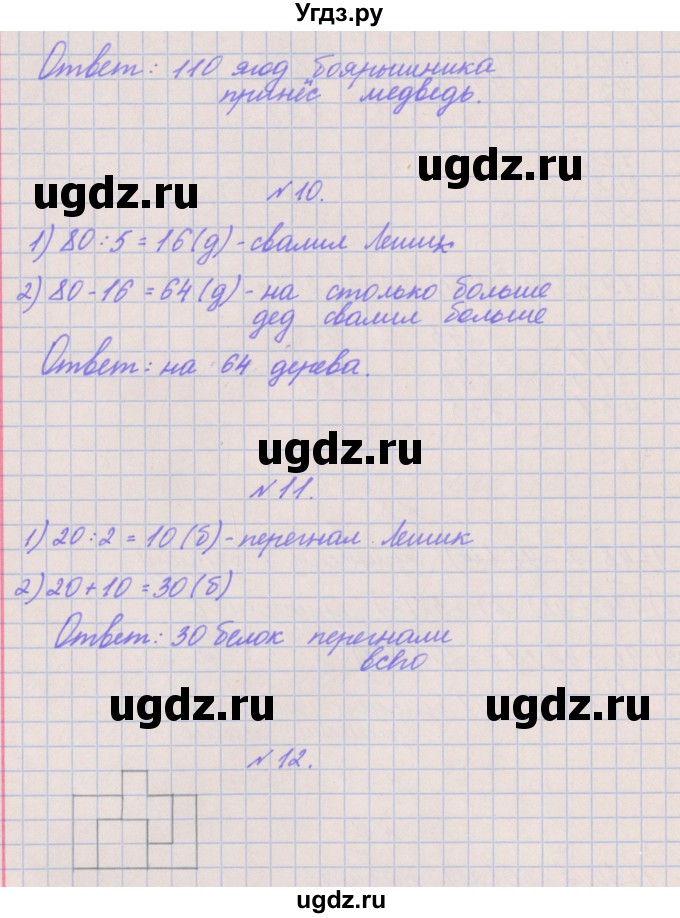 Угдз.ру
Ответ: 110 ягод боярышника
принёс медведь.
ugdz.ru
ugdz.ru
№10.
1) 80:5=16(д)-свалил Лешик
2) 80-16=64(д)-на столько больше
дед свалил больше
Ответ: на 64 дерева.
ugdz.ru
№11.
1) 20:2=10(б)-перегнал Лешик
2) 20+10=30(б)
Ответ: 30 белок перегнали
всего
ugdz.ru
ugdz.ru
№12.
ugdz.ru